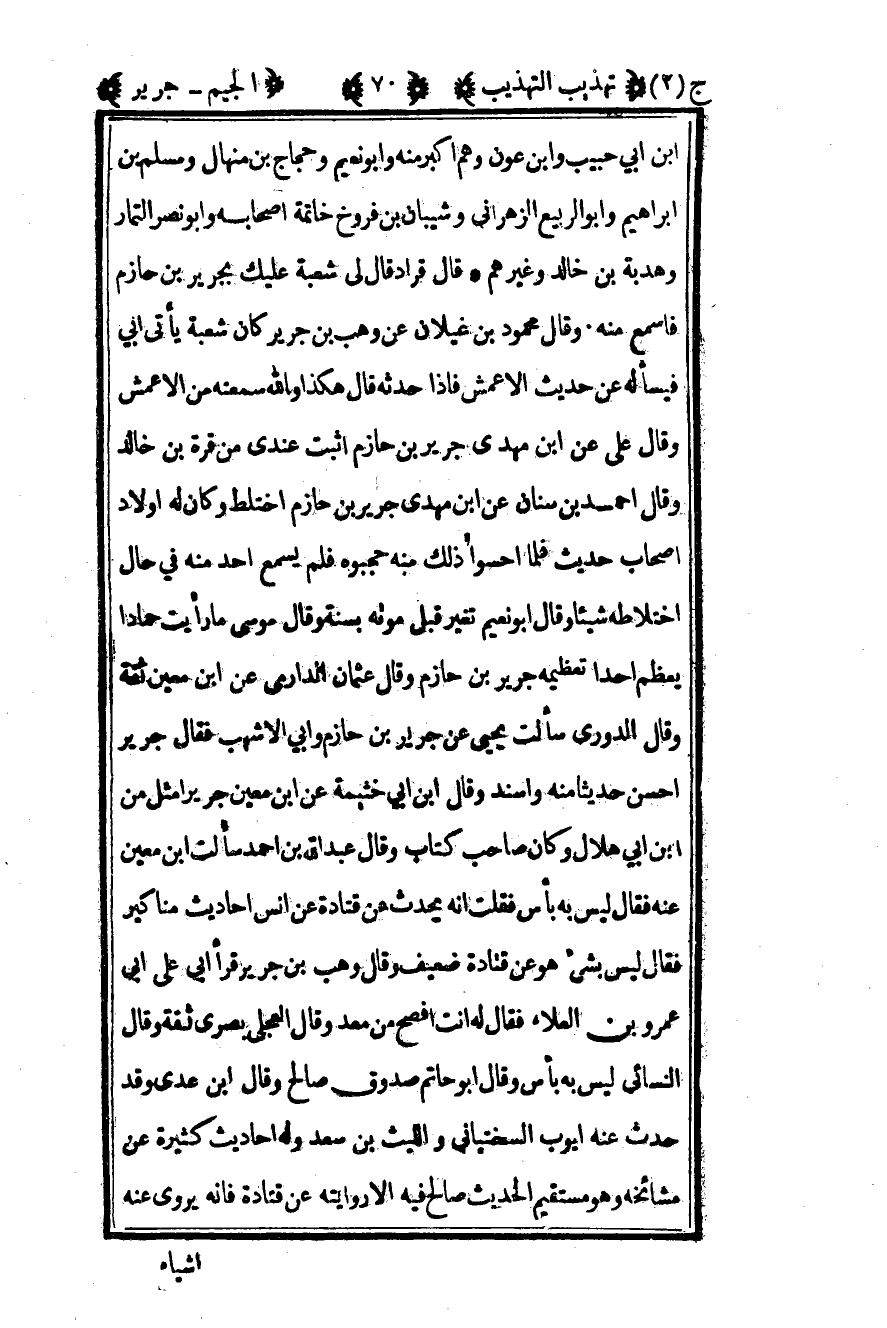 ج (٢) تهذيب التهذيب ٧٠ الجيم - جرير
ابن ابي حبيب وابن عون وهم اكبر منه وابو نعيم وحجاج بن منهال ومسلم بن
ابراهيم وابو الربيع الزهراني وشيبان بن فروخ خاتمة اصحابه وابو نصر التمار
وهدبة بن خالد وغيرهم • قال قراد قال لى شعبة عليك بجرير بن حازم
فاسمع منه · وقال محمود بن غيلان عن وهب بن جرير كان شعبة يأتى ابي
فيسأله عن حديث الاعمش فاذا حدثه قال هكذا والله سمعته من الاعمش
وقال على عن ابن مهدى جرير بن حازم اثبت عندى من قرة بن خالد
وقال احمد بن سنان عن ابن مهدى جرير بن حازم اختلط وكان له اولاد
اصحاب حديث فلما احسوا ذلك منه حجبوه فلم يسمع احد منه في حال
اختلاطه شيئا وقال ابو نعيم تغير قبل موته بسنة وقال موسى ما رأيت حمادا
يعظم احدا تعظيمه جرير بن حازم وقال عثمان الدارمى عن ابن معين ثقة
وقال الدورى سألت يحيى عن جرير بن حازم وابي الاشهب فقال جرير
احسن حديثا منه واسند وقال ابن ابي خثيمة عن ابن معين جرير امثل من
ابن ابي هلال وكان صاحب كتاب وقال عبدالله بن احمد سألت ابن معين
عنه فقال ليس به بأس فقلت انه يحدث عن قتادة عن انس احاديث مناكير
فقال ليس بشئ هو عن قتادة ضعيف وقال وهب بن جرير قرأ ابي على ابي
عمرو بن العلاء فقال له انت افصح من معد وقال العجلى بصرى ثقة وقال
النسائى ليس به بأس وقال ابو حاتم صدوق صالح وقال ابن عدى وقد
حدث عنه ايوب السختياني و الليث بن سعد وله احاديث كثيرة عن
مشائخه وهو مستقيم الحديث صالح فيه الا روايته عن قتادة فانه يروى عنه
اشياء